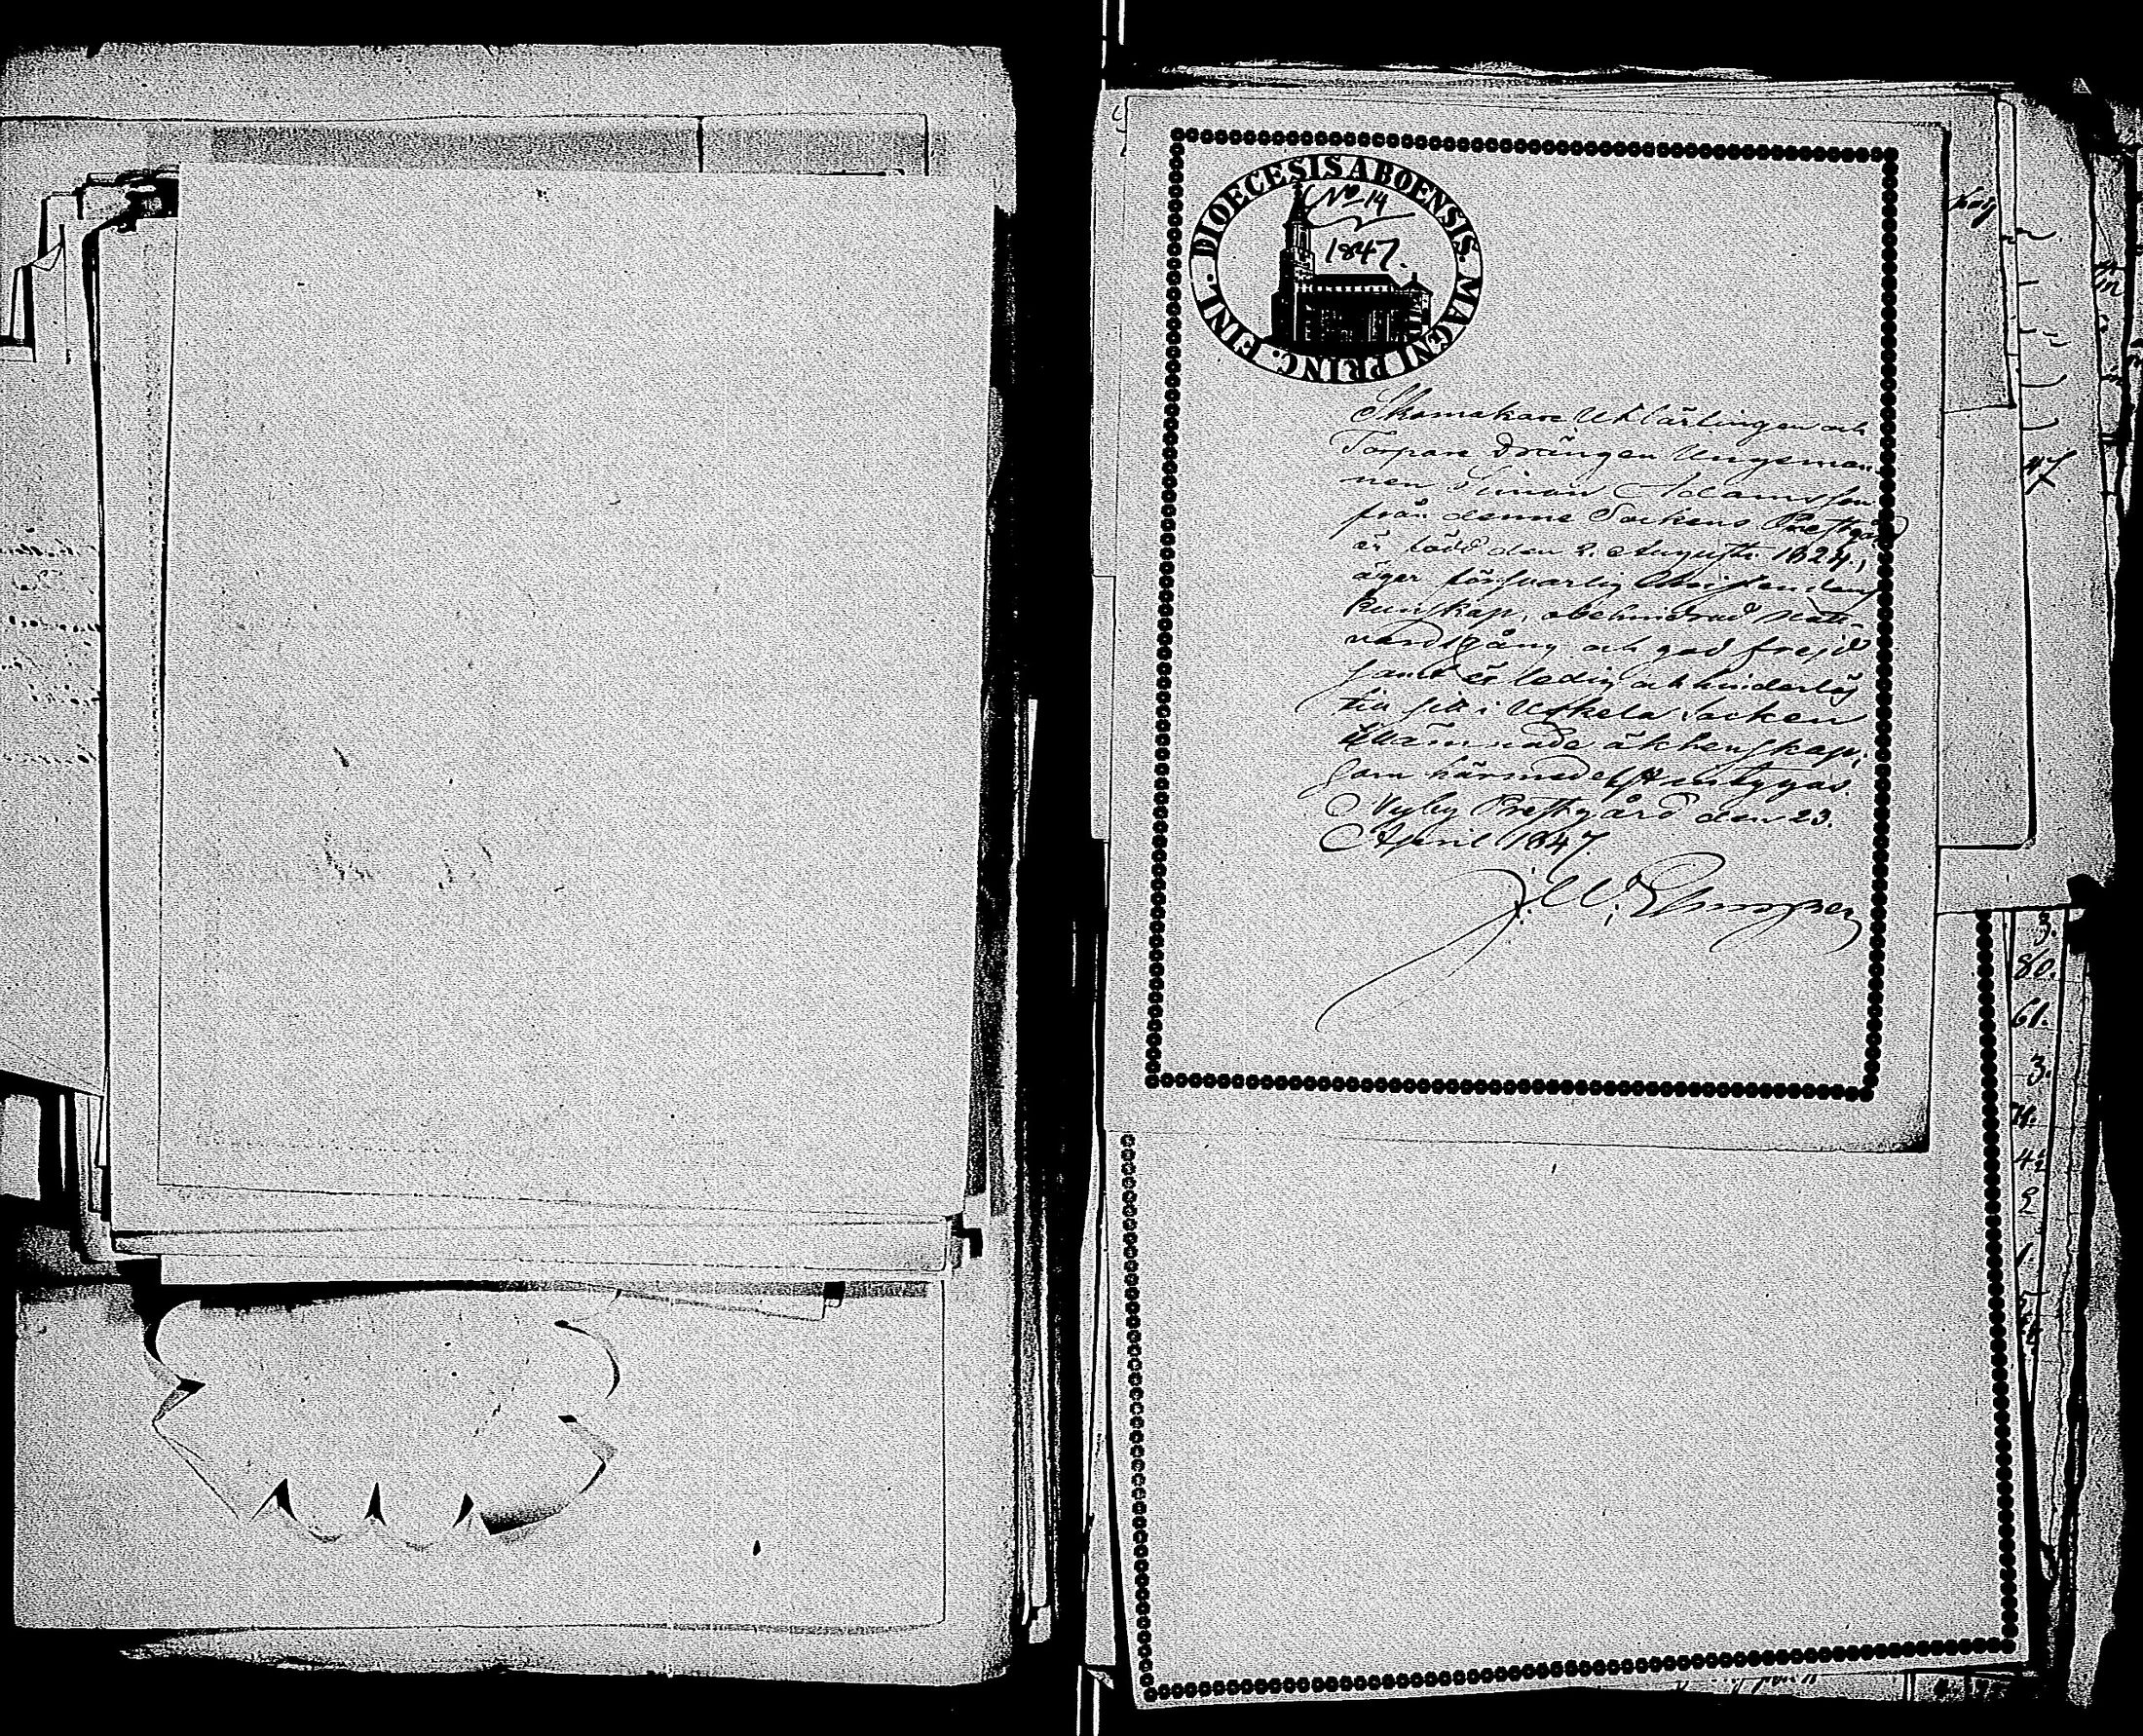 DIOECESIS ABOENSIS. MAGNI PRINC. FINL.
No 14
1847.
Skomakare Utlärlingen och
Torpare Drängen Ungeman-
nen Simon Adamsson
från denne Sockens Prestgård
är född den 2. Augusti 1824,
äger försvarlig Christendoms
kunskap, obehindrad Natt-
vardsgång och god frejd
samt är ledig och hinderlös
till sitt i Uskela Socken
ämnade äktenskap,
som härmedelst intygas.
Prestgård den 23.
April 1847.
J. W.
47
80.
61.
3.
42
2
1.